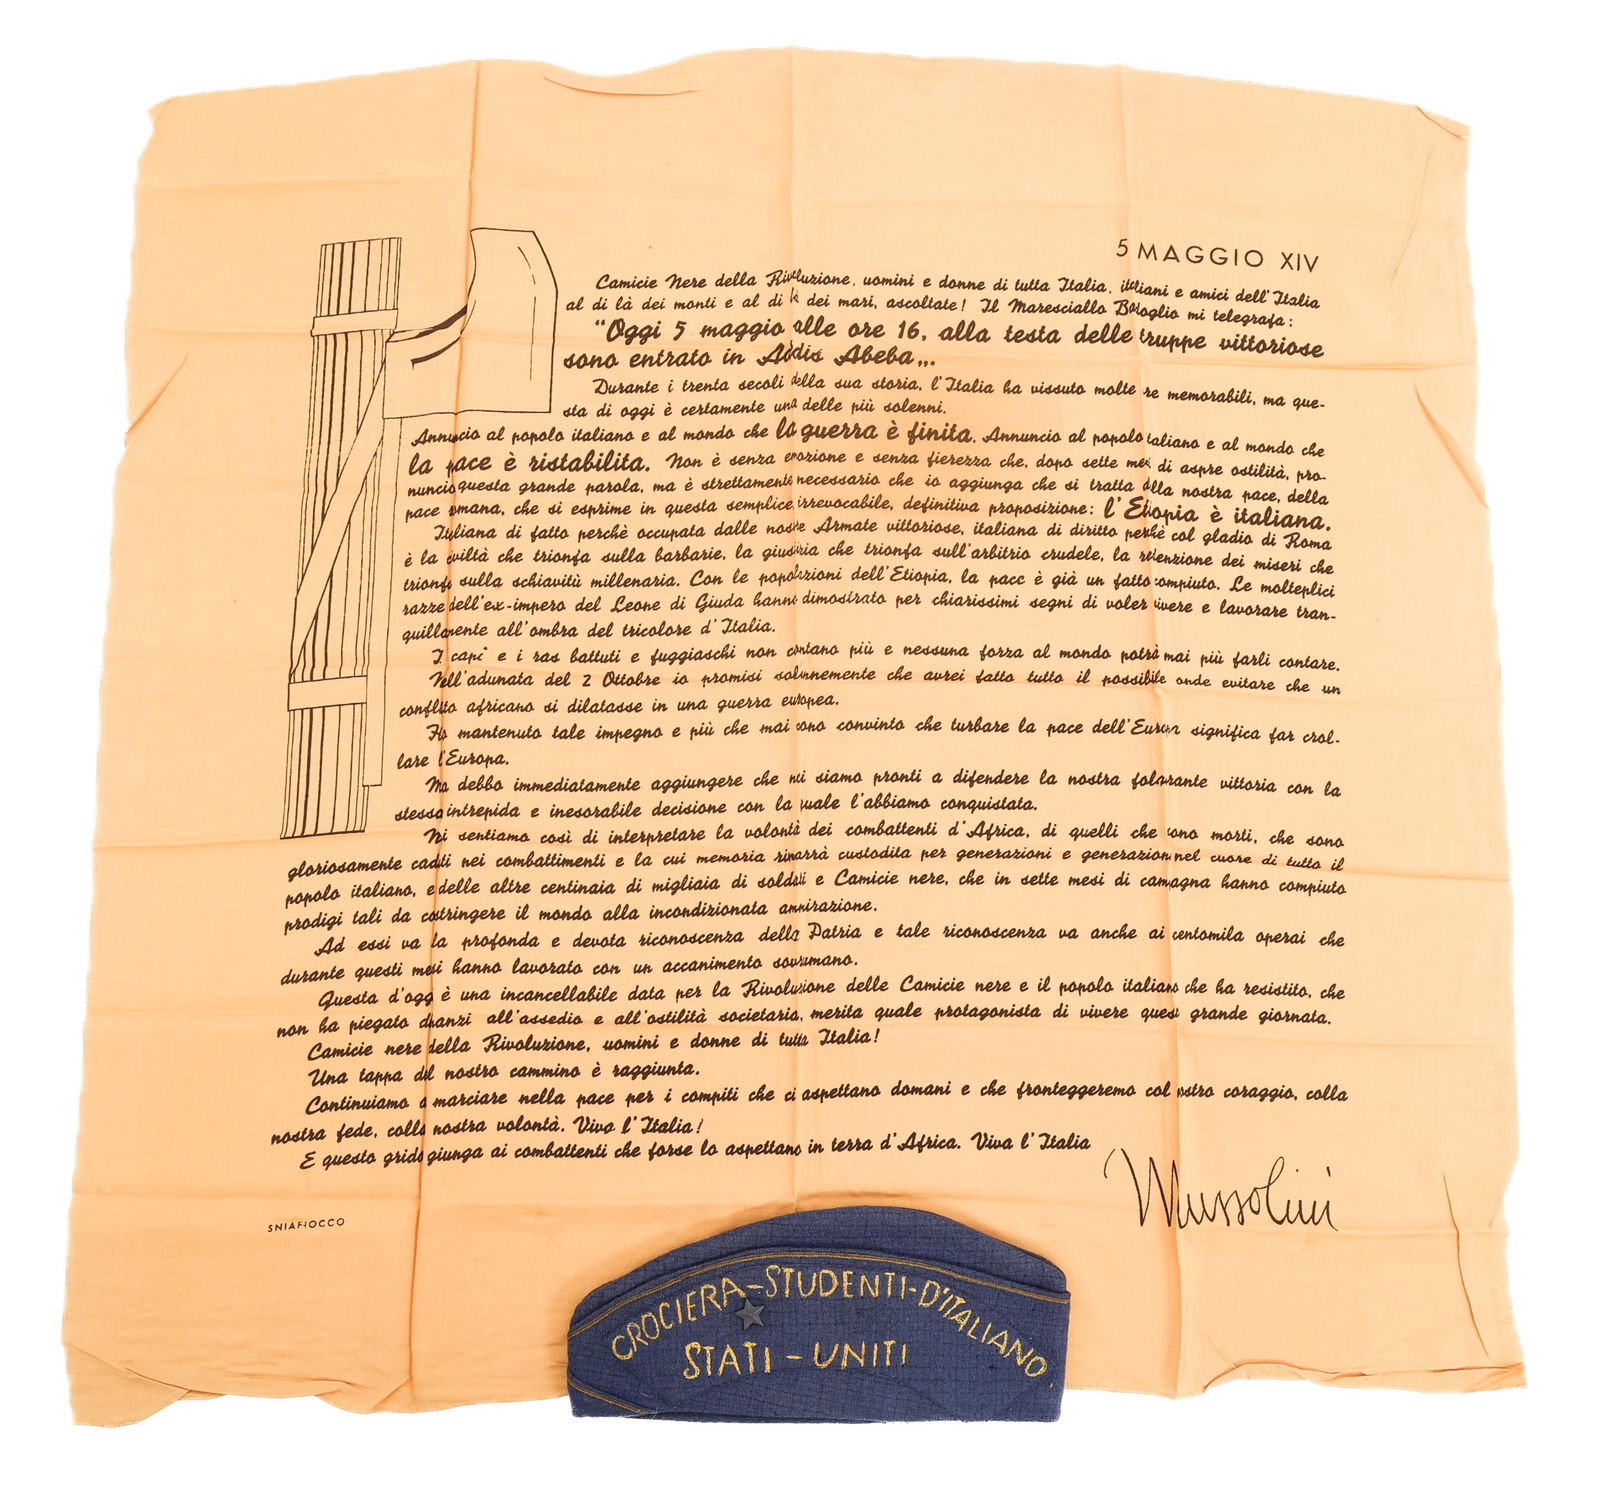 5 MAGGIO XIV
Camicie Nere della Rivoluzione, uomini e donne di tutta Italia, italiani e amici dell'Italia
al di là dei monti e al di là dei mari, ascoltate! Il Maresciallo Badoglio mi telegrafa:
"Oggi 5 maggio alle ore 16, alla testa delle truppe vittoriose
sono entrato in Addis Abeba„.
Durante i trenta secoli della sua storia, l'Italia ha vissuto molte re memorabili, ma que-
sta di oggi è certamente una delle più solenni.
Annuncio al popolo italiano e al mondo che la guerra è finita. Annuncio al popolo italiano e al mondo che
la pace è ristabilita. Non è senza emozione e senza fierezza che, dopo sette mesi di aspre ostilità, pro-
nuncio questa grande parola, ma è strettamente necessario che io aggiunga che si tratta della nostra pace, della
pace romana, che si esprime in questa semplice, irrevocabile, definitiva proposizione: l'Etiopia è italiana.
Italiana di fatto perchè occupata dalle nostre Armate vittoriose, italiana di diritto perchè col gladio di Roma
è la civiltà che trionfa sulla barbarie, la giustizia che trionfa sull'arbitrio crudele, la redenzione dei miseri che
trionfa sulla schiavitù millenaria. Con le popolazioni dell'Etiopia, la pace è già un fatto compiuto. Le molteplici
razze dell'ex-impero del Leone di Giuda hanno dimostrato per chiarissimi segni di voler vivere e lavorare tran-
quillamente all'ombra del tricolore d'Italia.
I capi e i ras battuti e fuggiaschi non contano più e nessuna forza al mondo potrà mai più farli contare.
Nell'adunata del 2 Ottobre io promisi solennemente che avrei fatto tutto il possibile onde evitare che un
conflitto africano si dilatasse in una guerra europea.
Ho mantenuto tale impegno e più che mai sono convinto che turbare la pace dell'Europa significa far crol-
lare l'Europa.
Ma debbo immediatamente aggiungere che noi siamo pronti a difendere la nostra folgorante vittoria con la
stessa intrepida e inesorabile decisione con la quale l'abbiamo conquistata.
Noi sentiamo così di interpretare la volontà dei combattenti d'Africa, di quelli che sono morti, che sono
gloriosamente caduti nei combattimenti e la cui memoria rimarrà custodita per generazioni e generazioni nel cuore di tutto il
popolo italiano, e delle altre centinaia di migliaia di soldati e Camicie nere, che in sette mesi di campagna hanno compiuto
prodigi tali da costringere il mondo alla incondizionata ammirazione.
Ad essi va la profonda e devota riconoscenza della Patria e tale riconoscenza va anche ai centomila operai che
durante questi mesi hanno lavorato con un accanimento sovrumano.
Questa d'oggi è una incancellabile data per la Rivoluzione delle Camicie nere e il popolo italiano che ha resistito, che
non ha piegato dinanzi all'assedio e all'ostilità societaria, merita quale protagonista di vivere questa grande giornata.
Camicie nere della Rivoluzione, uomini e donne di tutta Italia!
Una tappa del nostro cammino è raggiunta.
Continuiamo a marciare nella pace per i compiti che ci aspettano domani e che fronteggeremo col nostro coraggio, colla
nostra fede, colla nostra volontà. Viva l'Italia!
E questo grido giunga ai combattenti che forse lo aspettano in terra d'Africa. Viva l'Italia
Mussolini
SNIAFIOCCO
CROCIERA-STUDENTI-D'ITALIANO
STATI-UNITI